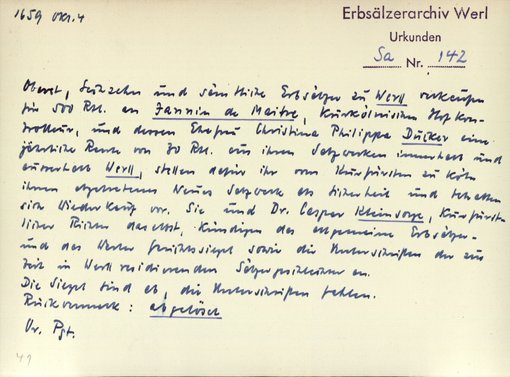 1659 Okt. 4
Erbsälzerarchiv Werl
Urkunden
Sa Nr. 142
Oberst, Sechzehn und sämtliche Erbsälzer zu Werl verkaufen
für 500 Rtl. an Jannin de Maitre, kurkölnischen Hofkon-
trolleur, und dessen Ehefrau Christina Philippa Dücker eine
jährliche Rente von 30 Rtl. aus ihren Salzwerken innerhalb und
ausserhalb Werl, stellen dafür ihr vom Kurfürsten zu Köln
ihnen abgetretenes Neues Salzwerk als Sicherheit und behalten
sich Wiederkauf vor. Sie und Dr. Caspar Kleinsorge, Kurfürst-
licher Richter daselbst, kündigen das allgemeine Erbsälzer-
und das Werler Gerichtssiegel sowie die Unterschriften der zur
Zeit in Werl residierenden Sälzergeschlechter an.
Die Siegel sind ab, die Unterschriften fehlen.
Rückvermerk: abgelöset
Or. Pgt.
41